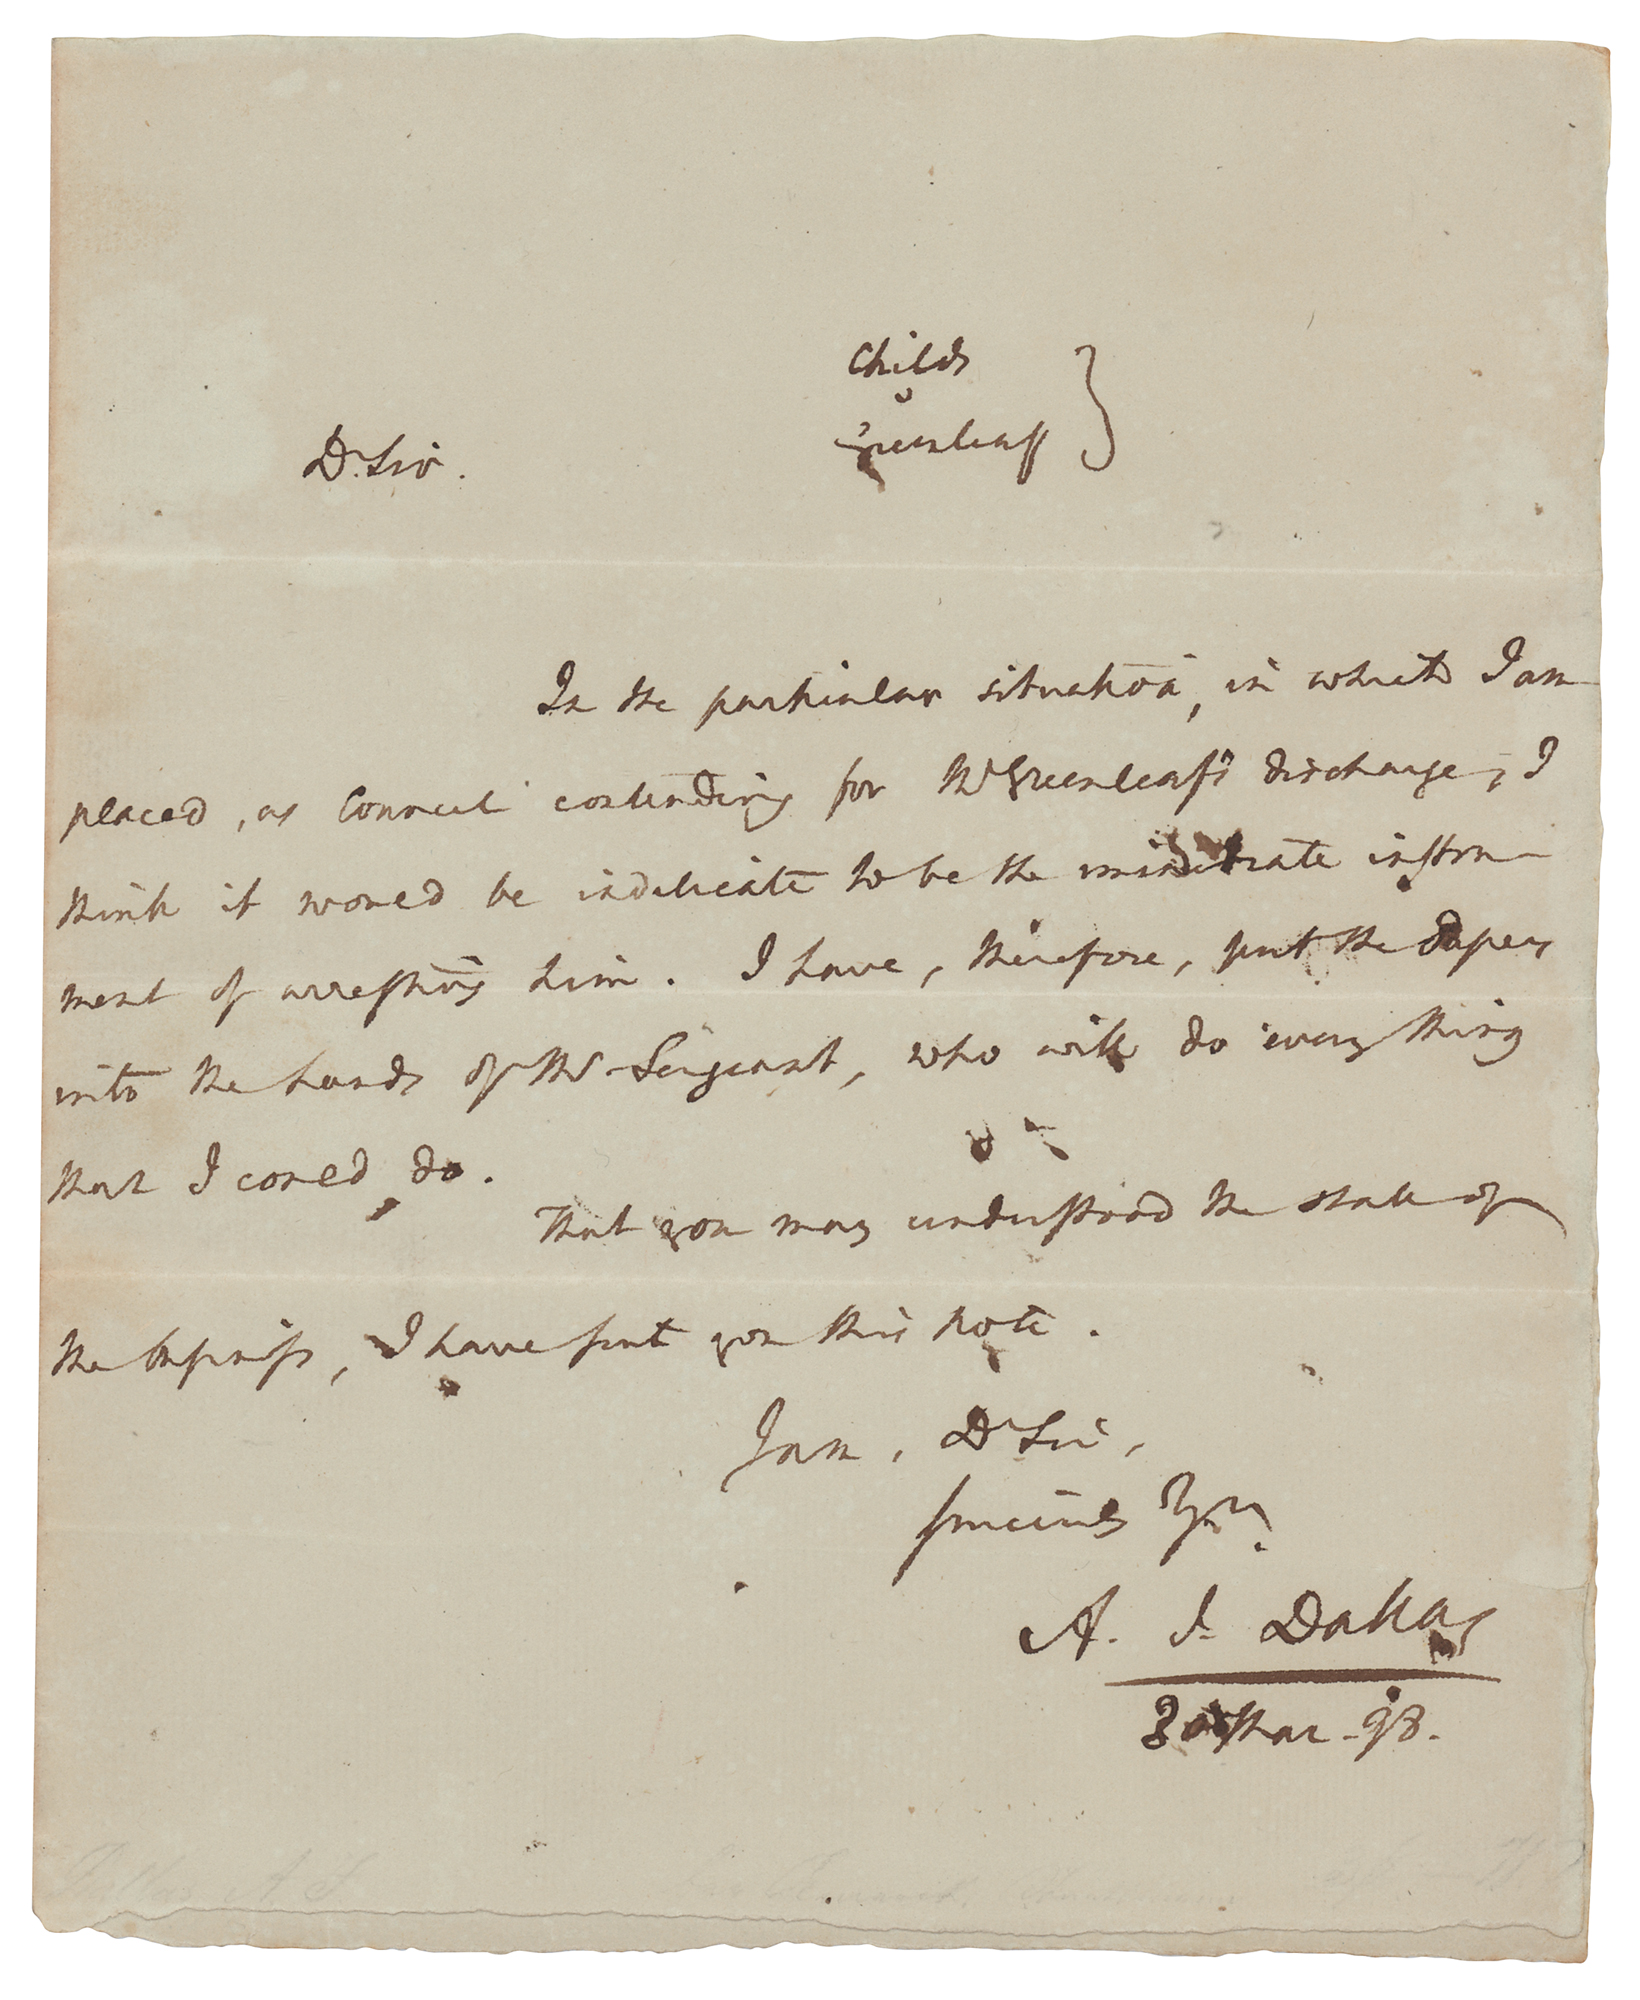 Childs
v
Greenleaf }
Dr. Sir.
In the particular situation, in which I am
placed, as Counsel contending for Mr Greenleaf's discharge, I
think it would be indelicate to be the immediate instru-
ment of arresting him. I have, therefore, put the papers
into the hands of Mr. Sergeant, who will do every thing
that I could do.
That you may understand the state of
the business, I have sent you this note.
I am, Dr Sir,
sincerely Yrs.
A. J. Dallas
30 Mar. 98.
Dallas A. J.